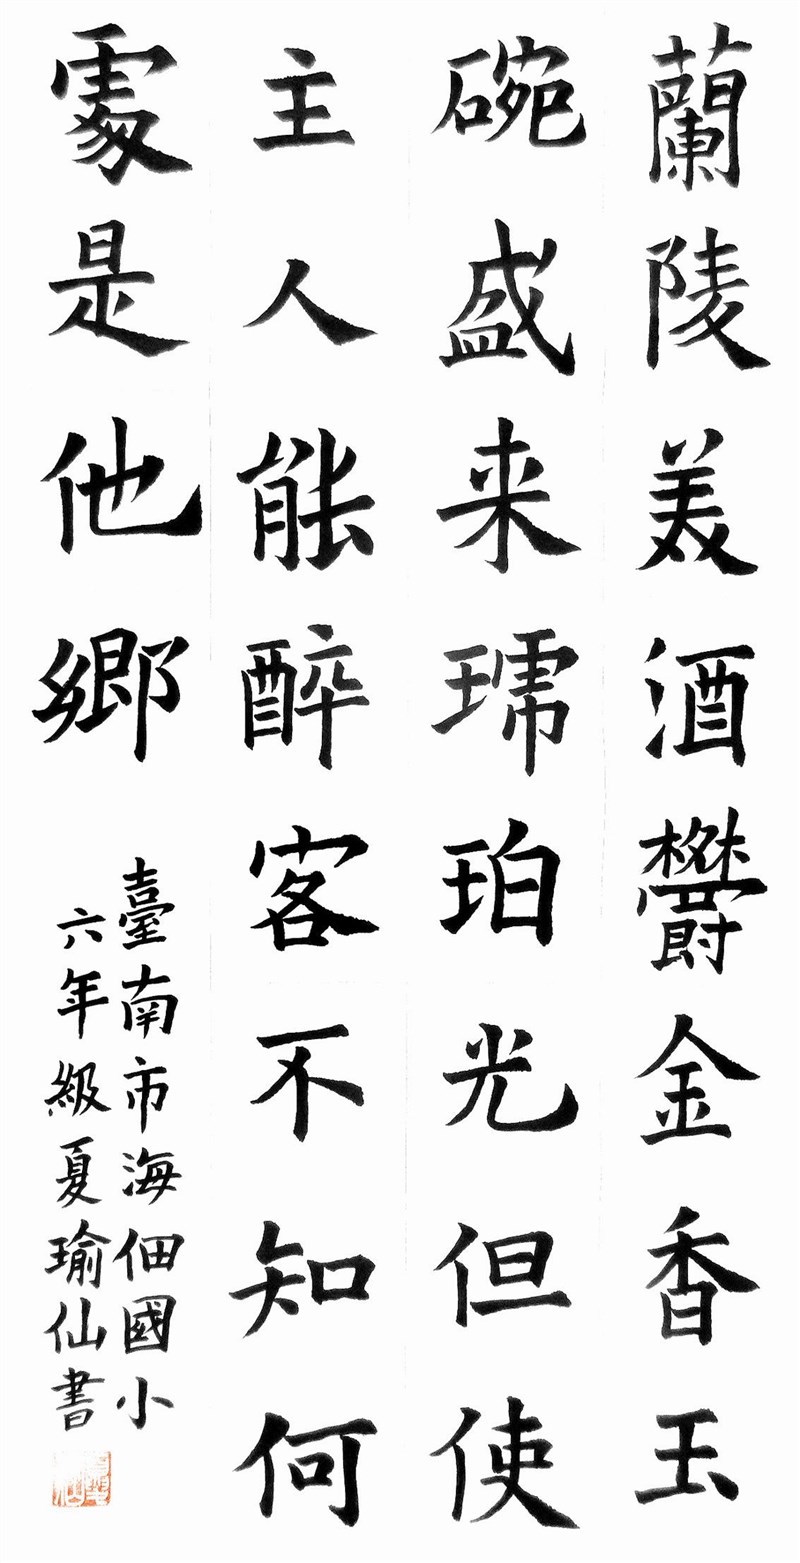 蘭陵美酒欝金香玉
碗盛来琥珀光但使
主人能醉客不知何
處是他鄉
臺南市海佃國小
六年級夏瑜仙書